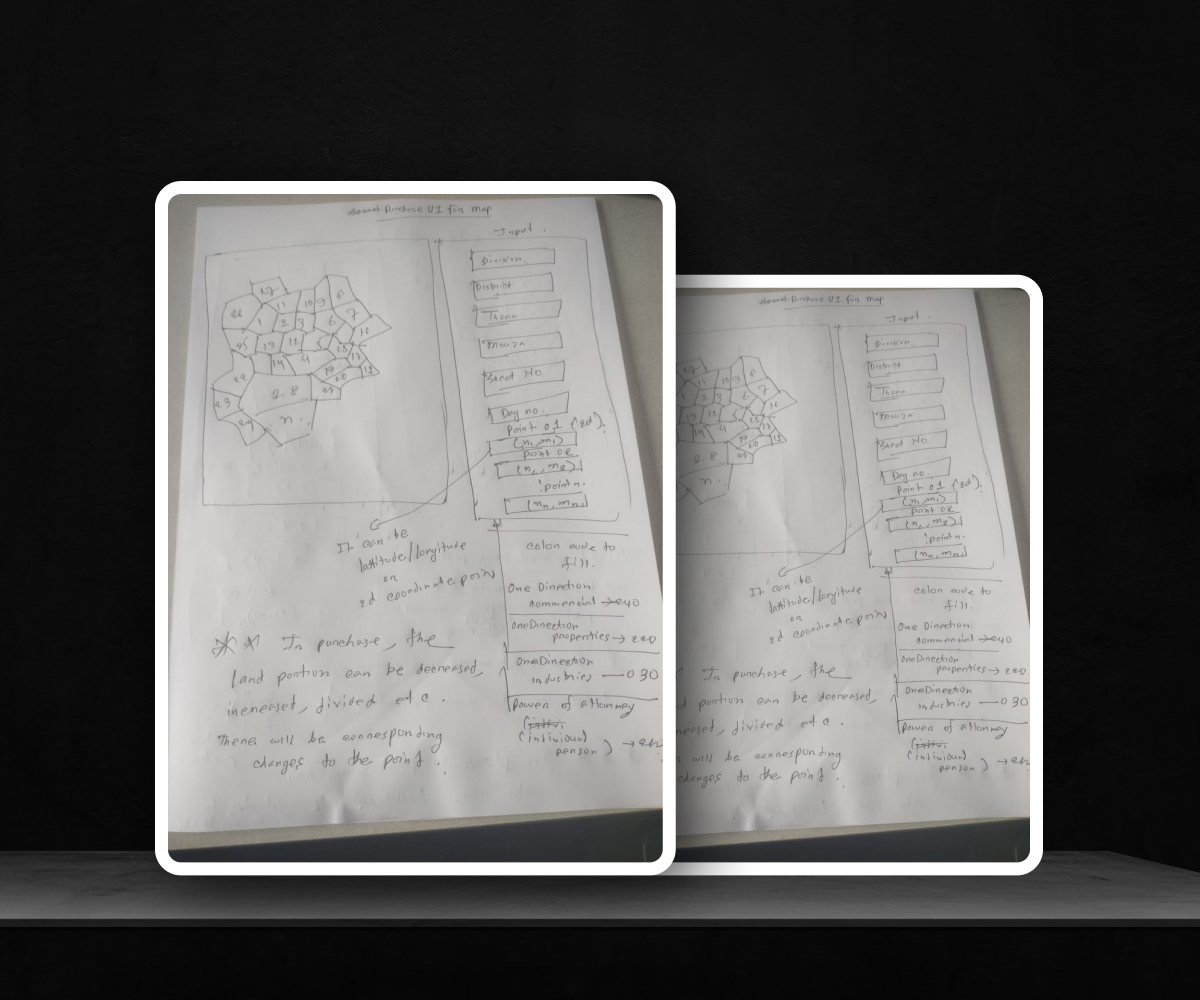 UI for map
Input.
Division.
District
Thana
Mouza
Sheet No
Dag no.
Point 01 (2d).
(n1, m1)
point 02
(n2, m2)
point n.
(nn, mn)
27
11
10
9
8
26
1
2
3
6
7
16
25
13
12
5
15
17
14
4
19
18
22
20
21
23
2.8
24
n..
It can be
lattitude/longitude
or
2d coordinate points
color code to
fill.
One Direction
commercial →
OneDirection
properties →
OneDirection
industries — 030
Power of attorney
(individual
person) →
** In purchase, the
land portion can be decreased,
increased, divided etc.
There will be corresponding
changes to the point.
UI for map
Input.
Division.
District
Thana
Mouza
Sheet No
Dag no.
Point 01 (2d).
(n1, m1)
point 02
(n2, m2)
point n.
(nn, mn)
11
10
9
8
1
2
3
6
7
16
13
12
5
15
17
14
4
19
18
20
21
2.8
n.
It can be
lattitude/longitude
or
2d coordinate points
color code to
fill.
One Direction
commercial →
OneDirection
properties →
OneDirection
industries — 030
Power of attorney
(individual
person) →
In purchase, the
portion can be decreased,
divided etc.
will be corresponding
changes to the point.